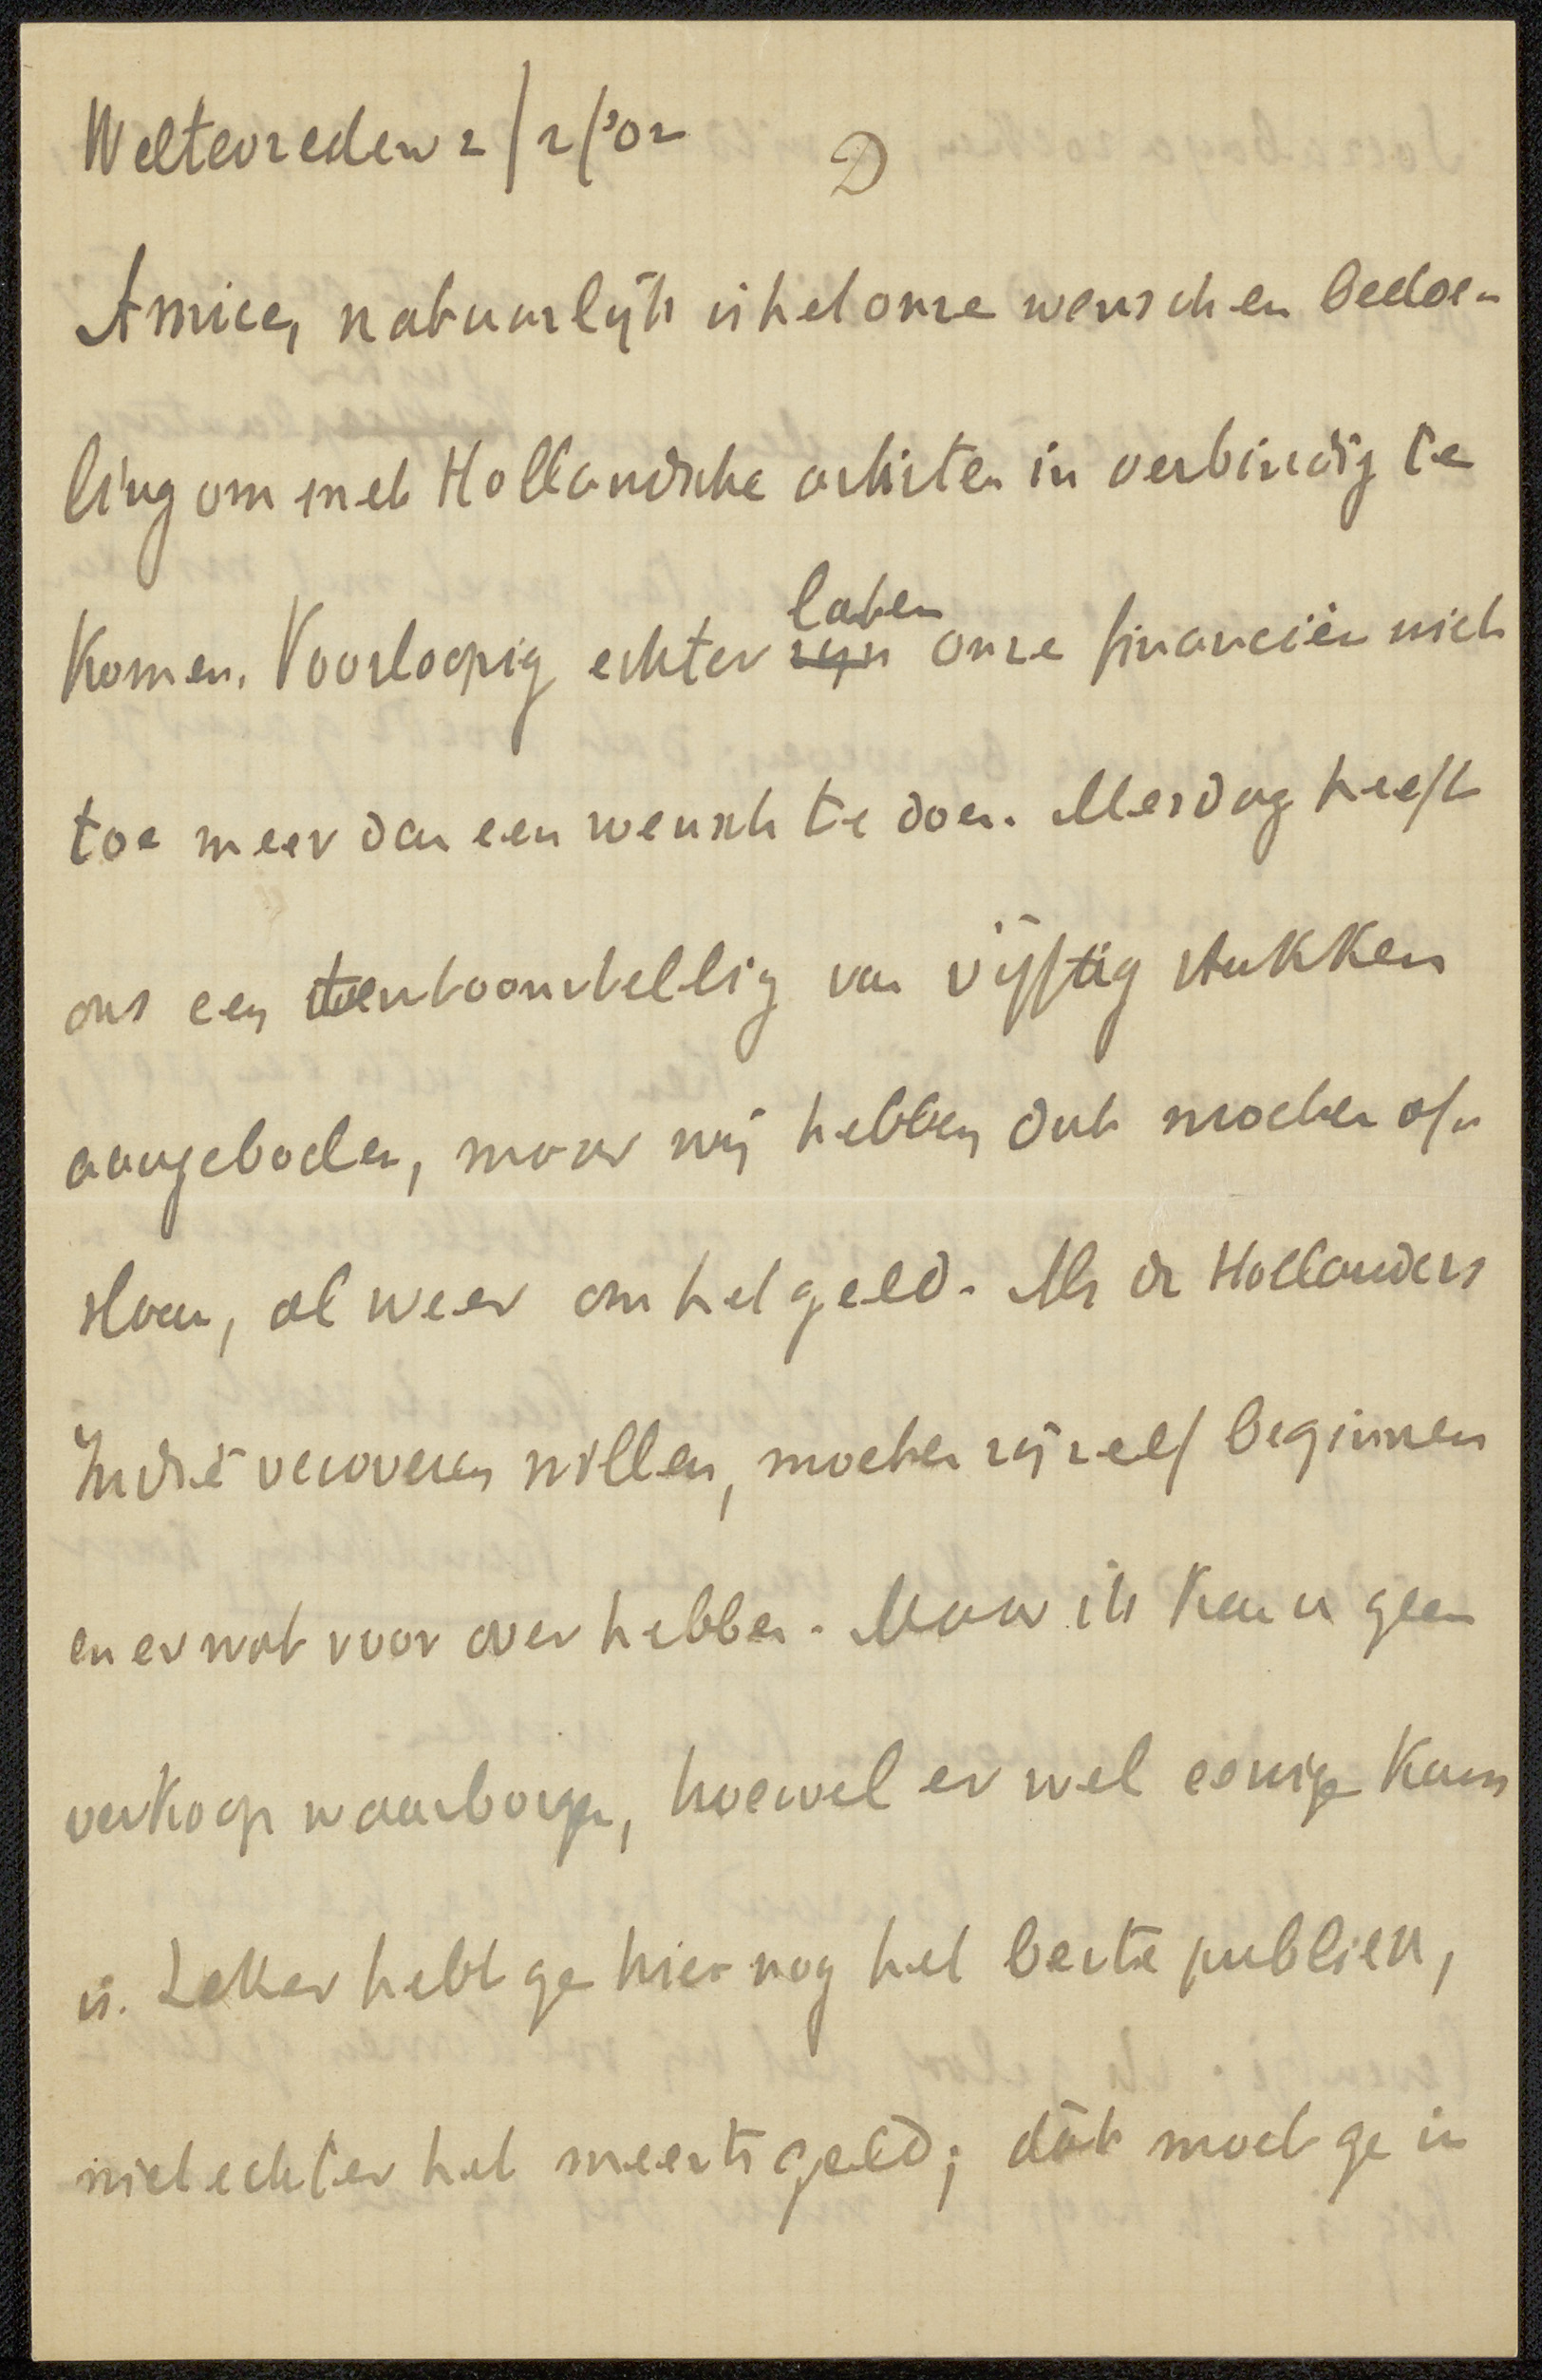 Weltevreden 2/2/'02
D
Amice, natuurlijk is het onze wensch en bedoe-
ling om met Hollandsche artisten in verbindig te
komen. Voorloopig echter laten
zijn onze financiën niet
toe meer dan een wensch te doen. Mesdag heeft
ons een tentoonstellig van vijftig stukken
aangeboden, maar wij hebben dat moeten af-
slaan, al weer om het geld. Als de Hollanders
Indië veroveren willen, moeten zij zelf beginnen
en er wat voor over hebben. Maar ik kan u geen
verkoop waarborgen, hoewel er wel eenige kans
is. Zeker hebt ge hier nog het beste publiek,
niet echter het meeste geld; dát moet ge in